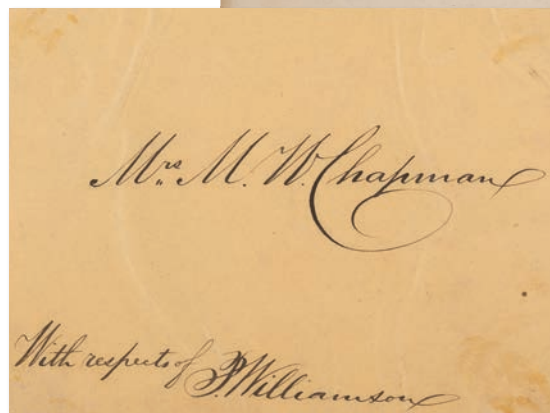 Mrs. M. W. Chapman
With respects of P. Williamson